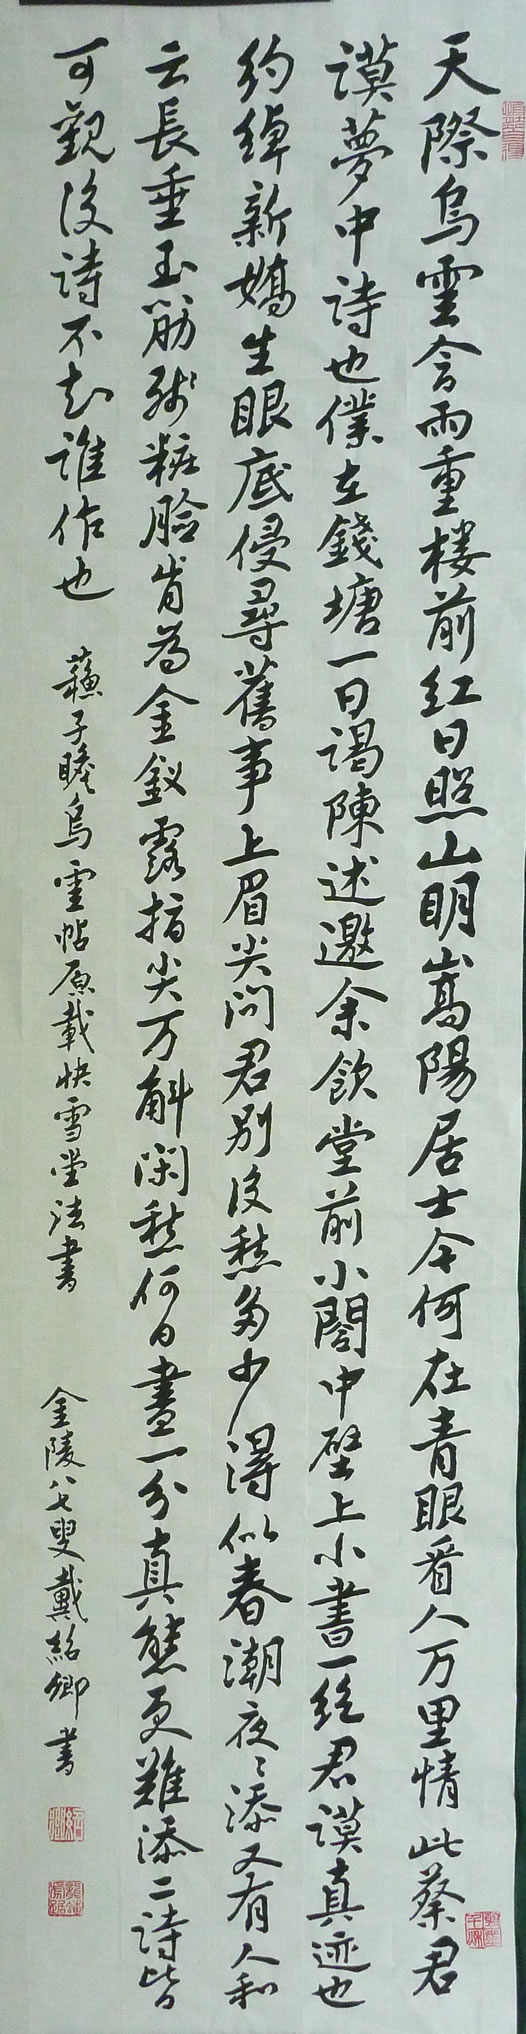 天際烏雲含雨重楼前紅日照山明嵩陽居士今何在青眼看人万里情此蔡君
謨夢中詩也僕在錢塘一日謁陳述邀余飲堂前小閣中壁上小書一絶君謨真迹也
約綽新嬌生眼底侵尋舊事上眉尖問君別後愁多少得似春潮夜〻添又有人和
云長垂玉筋殘粧臉肯為金釵露指尖万斛閑愁何日盡一分真態更難添二詩皆
可觀後詩不知誰作也 蘇子瞻烏雲帖原載快雪堂法書 金陵八七叟戴紹卿書